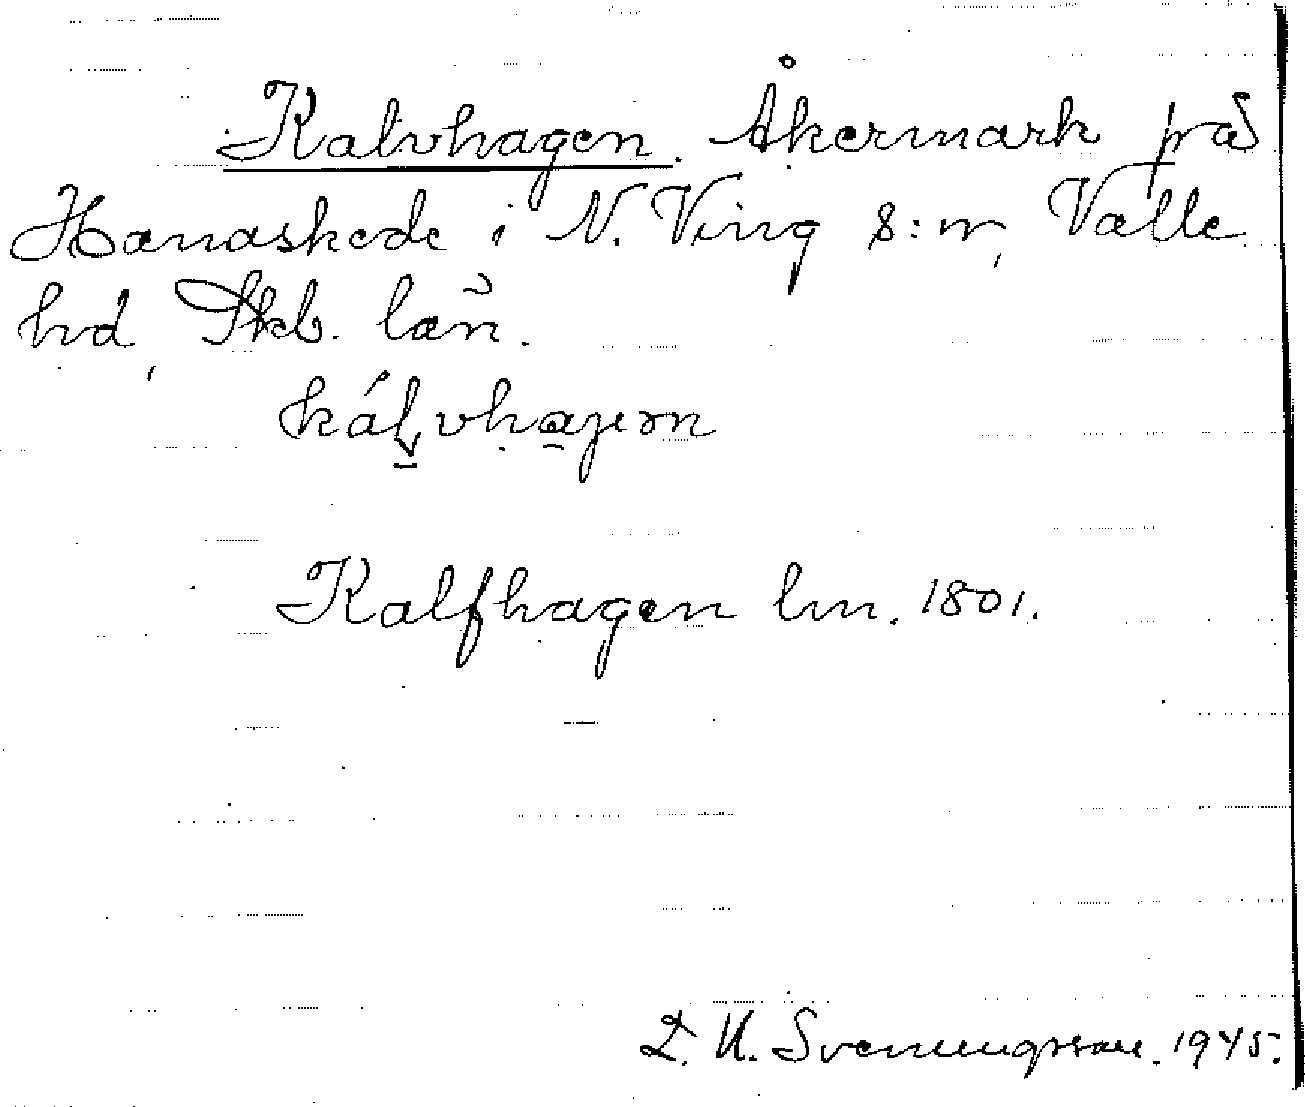 Kalvhagen. Åkermark på
Hanaskede i N. Ving s:n, Valle
hd, Skb. län.
Kalfhagen lm. 1801.
Svenungsson. 1945.